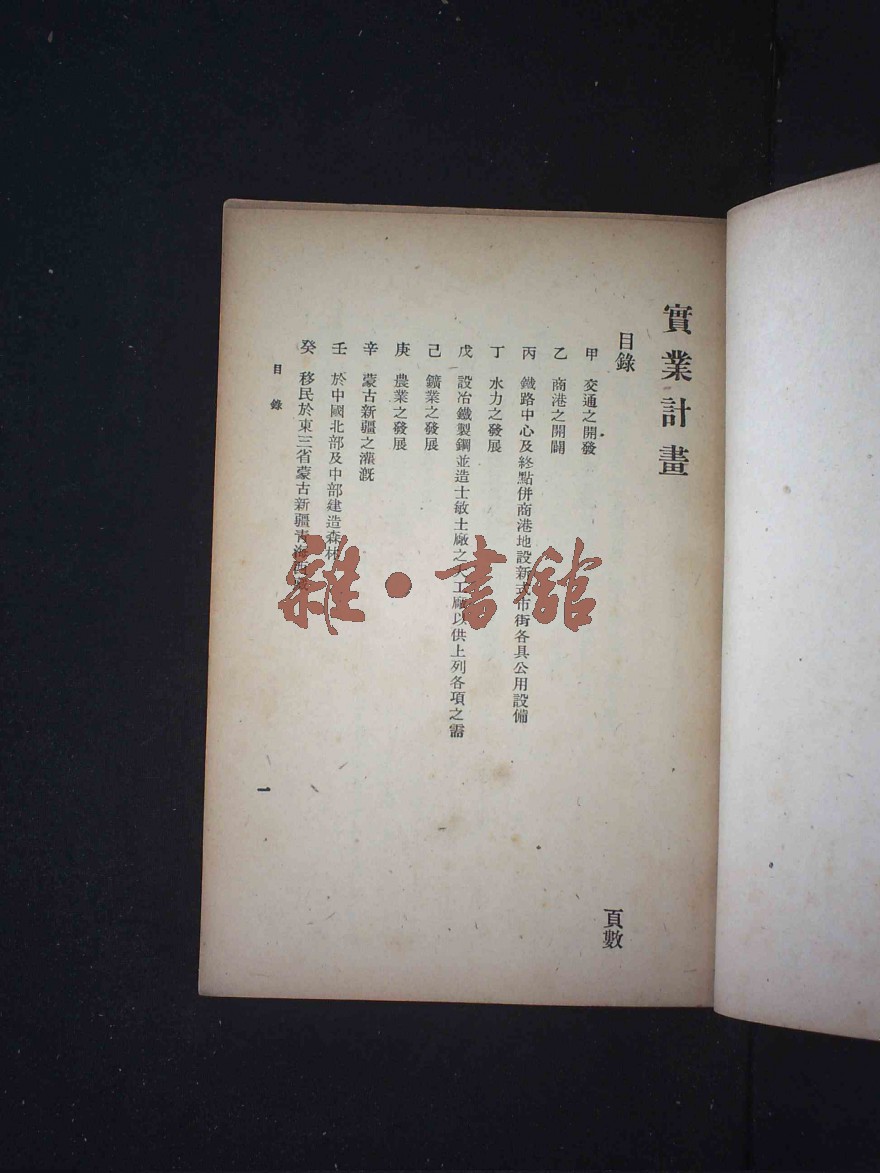 實業計畫
目錄
頁數
甲 交通之開發
乙 商港之開闢
丙 鐵路中心及終點併商港地設新式市街各具公用設備
丁 水力之發展
戊 設冶鐵製鋼並造士敏土廠之大工廠以供上列各項之需
己 鑛業之發展
庚 農業之發展
辛 蒙古新疆之灌漑
壬 於中國北部及中部建造森林
癸 移民於東三省蒙古新疆青海西藏
目錄
一
雜·書館